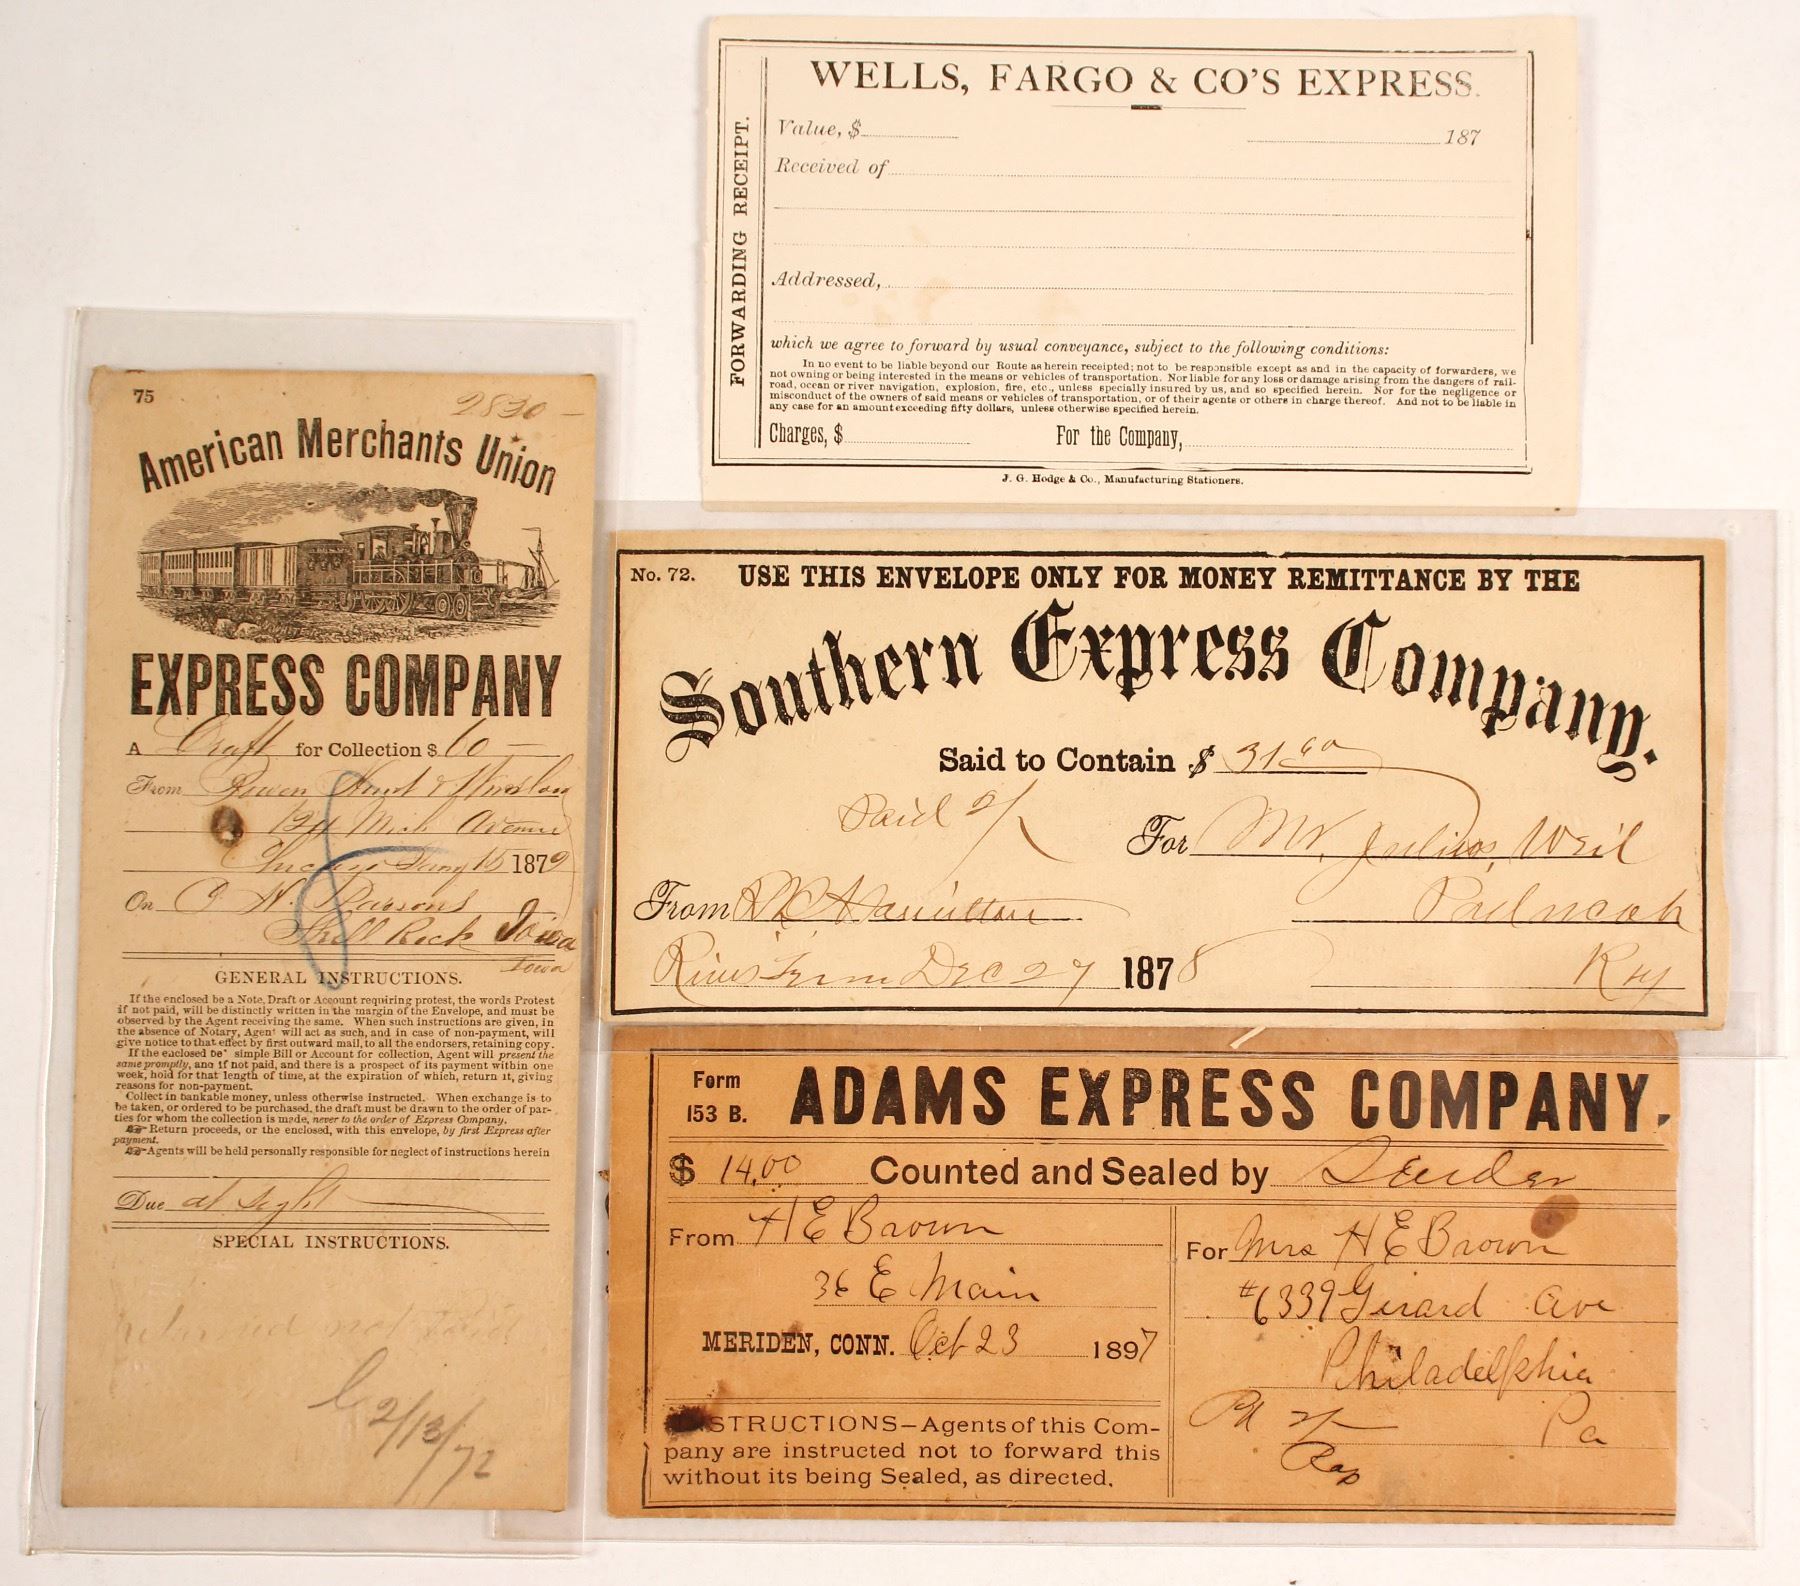 WELLS, FARGO & CO'S EXPRESS.
FORWARDING RECEIPT.
Value, $
187
Received of
Addressed,
which we agree to forward by usual conveyance, subject to the following conditions:
In no event to be liable beyond our Route as herein receipted; not to be responsible except as and in the capacity of forwarders, we
not owning or being interested in the means or vehicles of transportation. Nor liable for any loss or damage arising from the dangers of rail-
road, ocean or river navigation, explosion, fire, etc., unless specially insured by us, and so specified herein. Nor for the negligence or
misconduct of the owners of said means or vehicles of transportation, or of their agents or others in charge thereof. And not to be liable in
any case for an amount exceeding fifty dollars, unless otherwise specified herein.
Charges, $ For the Company,
J. G. Hodge & Co., Manufacturing Stationers.
75
2830 —
American Merchants Union
EXPRESS COMPANY
A Draft for Collection $ 60 —
From Bowen Hunt & Winslow
Mich Avenue
Chicago Jany 15 1872
On C. H. Parsons
Shell Rock Iowa
Iowa
GENERAL INSTRUCTIONS.
If the enclosed be a Note, Draft or Account requiring protest, the words Protest
if not paid, will be distinctly written in the margin of the Envelope, and must be
observed by the Agent receiving the same. When such instructions are given, in
the absence of Notary, Agent will act as such, and in case of non-payment, will
give notice to that effect by first outward mail, to all the endorsers, retaining copy.
If the enclosed be simple Bill or Account for collection, Agent will present the
same promptly, and if not paid, and there is a prospect of its payment within one
week, hold for that length of time, at the expiration of which, return it, giving
reasons for non-payment.
Collect in bankable money, unless otherwise instructed. When exchange is to
be taken, or ordered to be purchased, the draft must be drawn to the order of par-
ties for whom the collection is made, never to the order of Express Company.
Return proceeds, or the enclosed, with this envelope, by first Express after
payment.
Agents will be held personally responsible for neglect of instructions herein
Due at Sight
SPECIAL INSTRUCTIONS.
Returned not paid
2/13/72
No. 72. USE THIS ENVELOPE ONLY FOR MONEY REMITTANCE BY THE
Southern Express Company.
Said to Contain $ 31
Paid
For Mr. Julius Weil
From Hamilton
Paducah
Dec 27 1878
Ky
Form
153 B.
ADAMS EXPRESS COMPANY.
$ 14.00 Counted and Sealed by Sender
From H E Brown
36 E Main
MERIDEN, CONN. Oct 23 1897
For Mrs H E Brown
#6339 Girard Ave
Philadelphia
Pa
Pd
INSTRUCTIONS—Agents of this Com-
pany are instructed not to forward this
without its being Sealed, as directed.